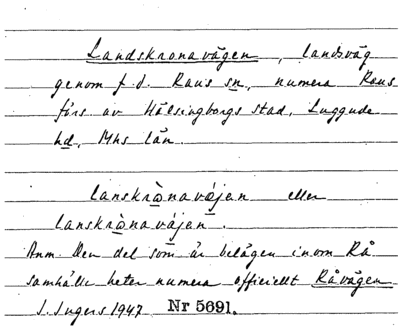 Landskronavägen, landsväg
genom f.d. Raus sn, numera Raus
förs av Hälsingborgs stad, Luggude
hd, Mhs län.
lanskrònavä́jen eller
lanskrònavä́jen.
Anm. Den del som är belägen inom Rå
samhälle heter numera officiellt Råvägen
I. Ingers 1947 Nr 5691.